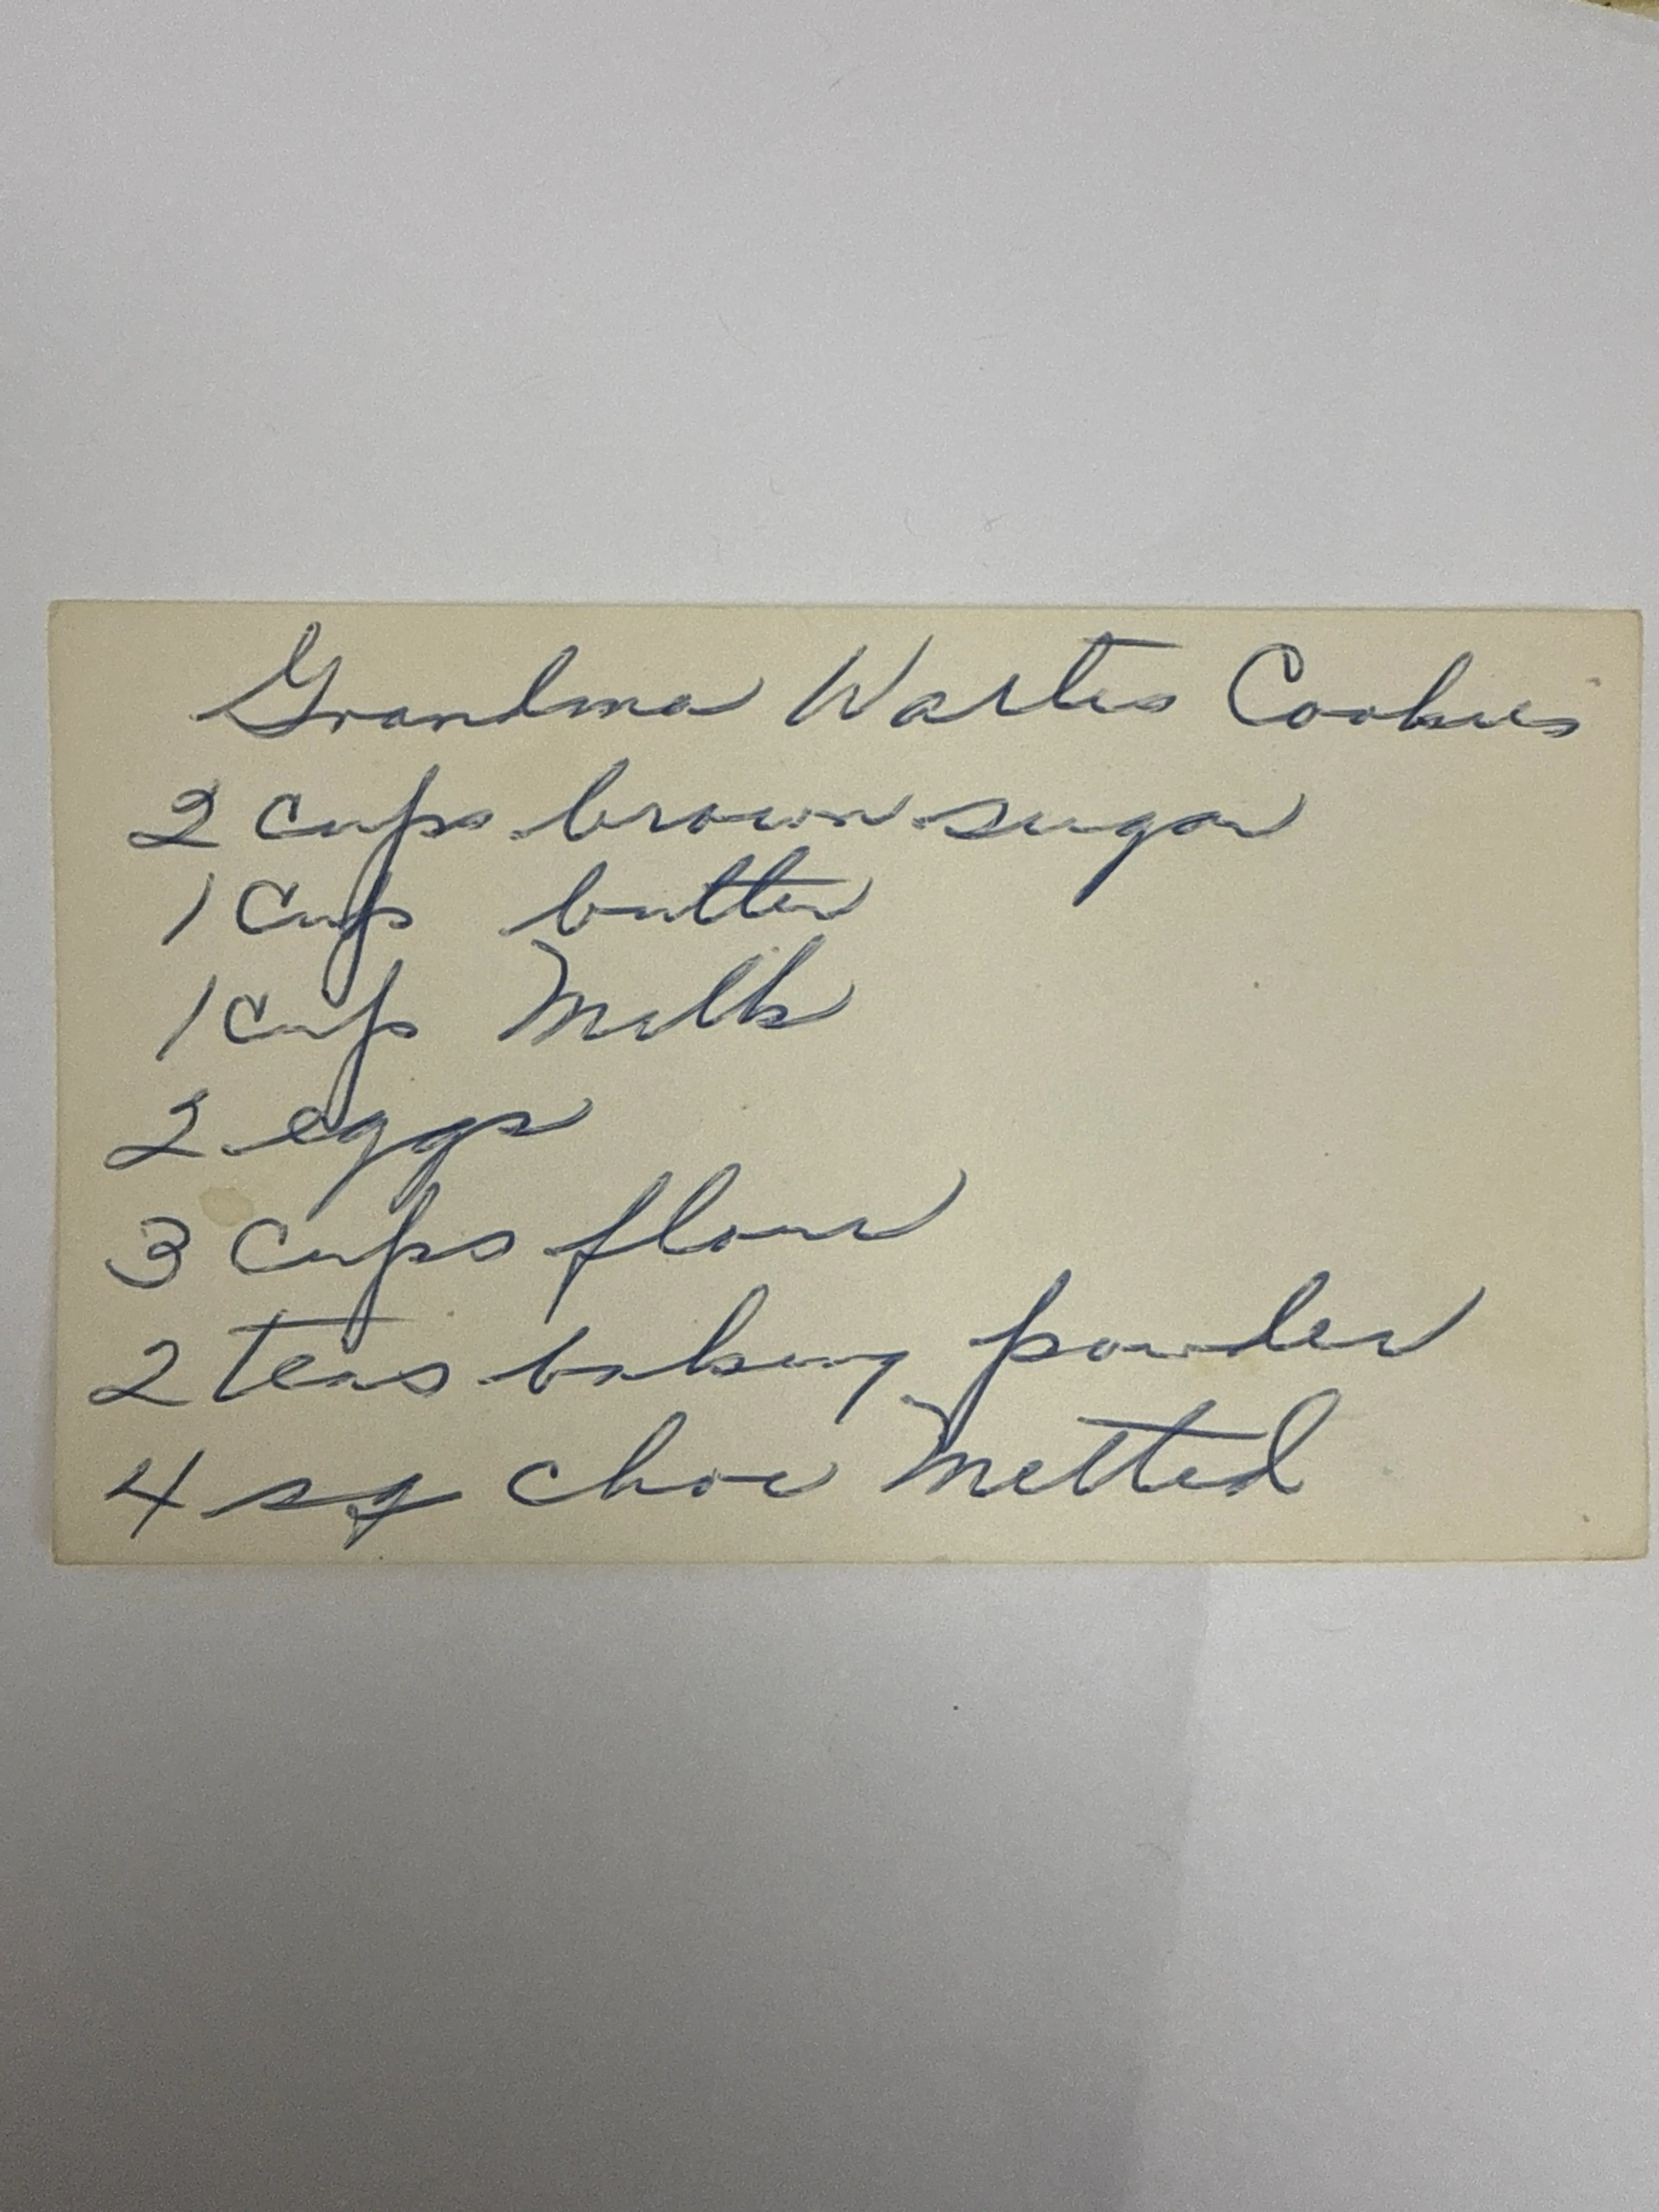 Grandma Cookies
2 cups brown sugar
1 cup butter
1 cup Milk
2 eggs
3 cups flour
2 teas baking powder
4 sq choc Melted